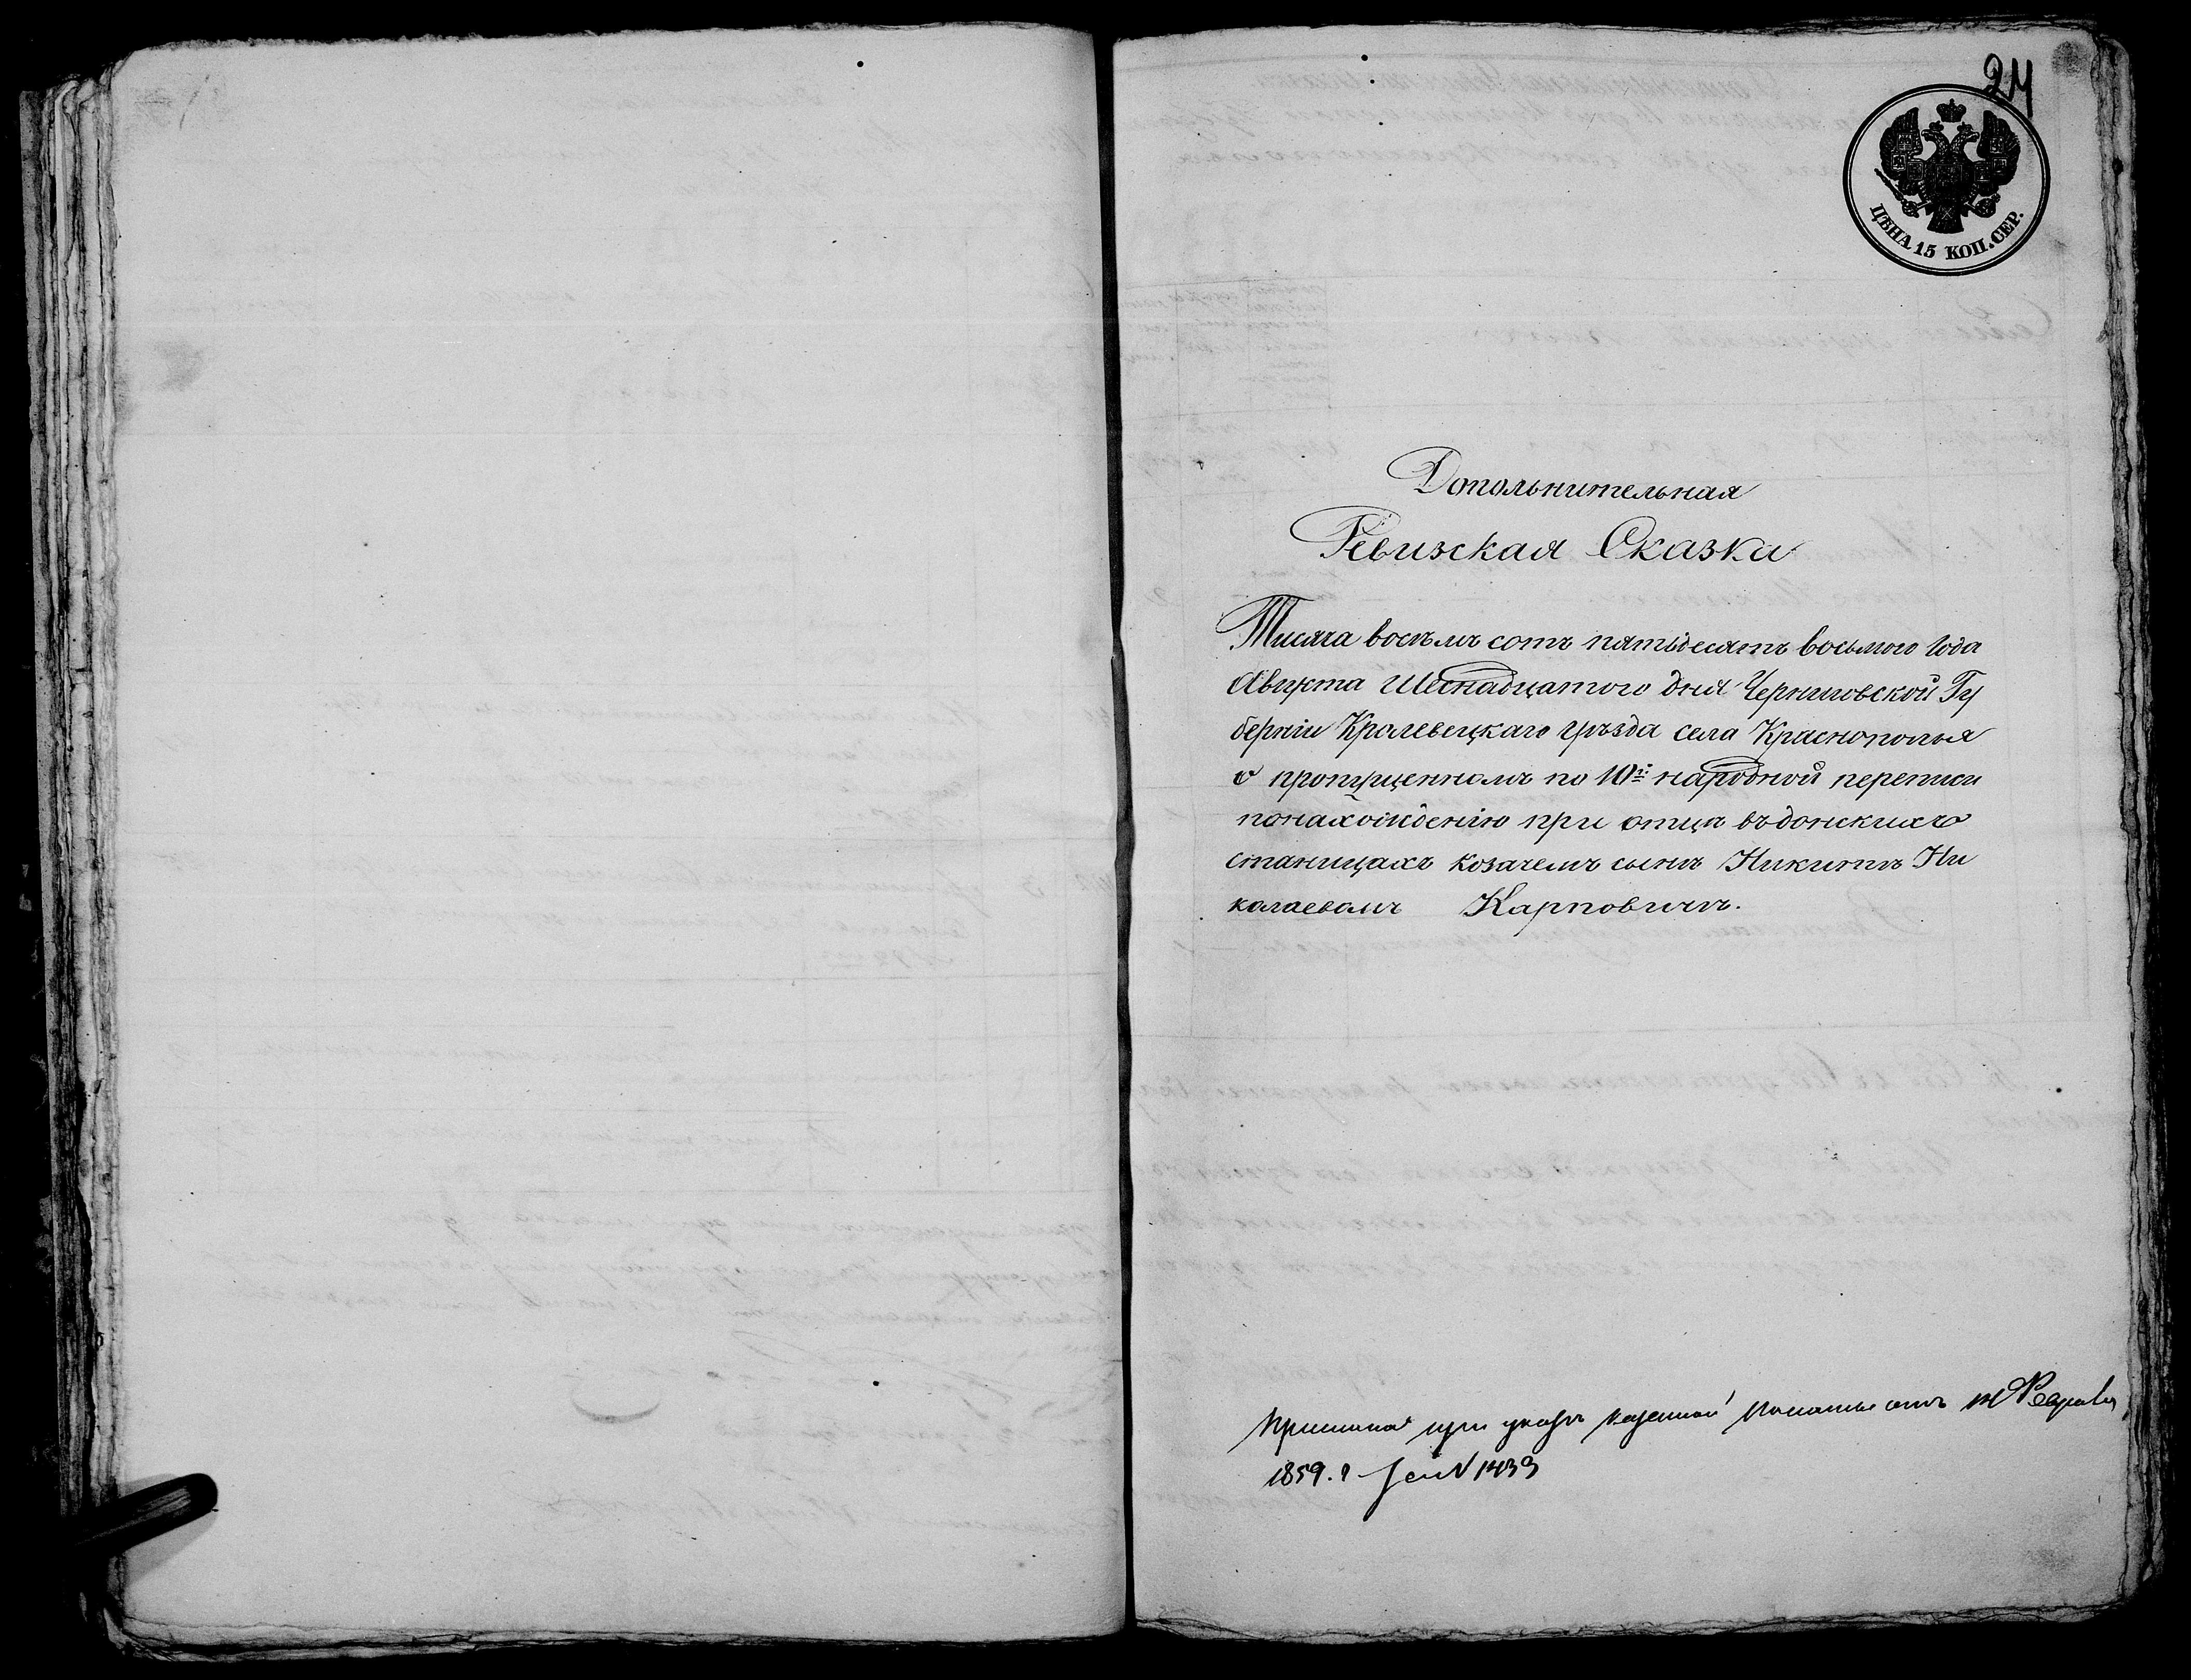 24
ЦѢНА 15 КОП. СЕР.
Допольнительная
Ревизская Сказка
Тисяча восѣмъ сотъ пятьдесятъ восьмого года
Августа Шеснадцатого дня Черниговской Гу
берніи Кролевецкаго уѣзда села Краснополья
о пропущенномъ по 10й народной переписи
понахожденію при отцѣ въдонскихъ
станицахъ козачемъ сынѣ Никитѣ Ни
колаевомъ Карповичѣ.
при указѣ казенной Палаты отъ
1859. г. за N 1439